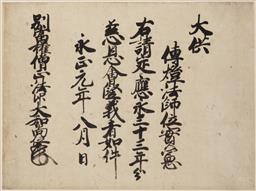 大供
傳燈法師位實寛
右請定應永三十三年分
慈恩會竪義者如件
永正元年八月日
別當權僧正法印大和尚位